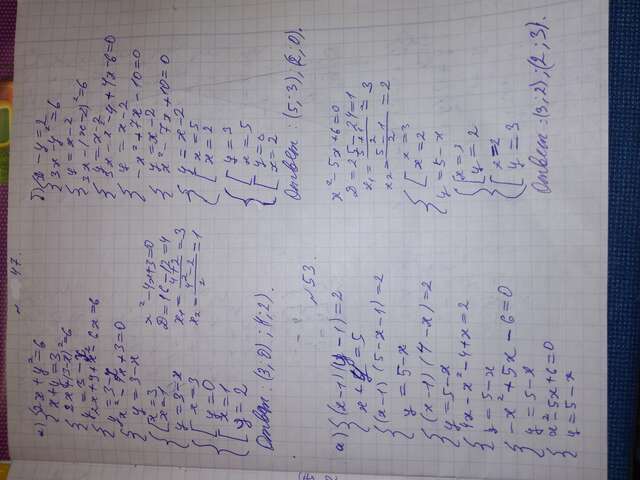 № 47.
а) {2x + y² = 6
{x + y = 3
{2x + (3-x)² = 6
{y = 3-x
{2x + 9 + x² - 6x = 6
{y = 3-x
{x² - 4x + 3 = 0
{y = 3-x
x² - 4x + 3 = 0
D = 16 - 12 = 4
x₁ = (4+2)/2 = 3
x₂ = (4-2)/2 = 1
{[x = 3
[x = 1
{y = 3-x
{[x = 3
[y = 0
{[x = 1
[y = 2
Ответ: (3; 0); (1; 2).
б) {x - y = 2
{3x - y² = 6
{y = x-2
{3x - (x-2)² = 6
{y = x-2
{3x - x² - 4 + 4x - 6 = 0
{y = x-2
{-x² + 7x - 10 = 0
{y = x-2
{x² - 7x + 10 = 0
{y = x-2
{[x = 5
[x = 2
{[y = 3
[x = 5
{[y = 0
[x = 2
Ответ: (5; 3); (2; 0).
№ 53.
а) {(x-1)(y-1) = 2
{x + y = 5
{(x-1)(5-x-1) = 2
{y = 5-x
{(x-1)(4-x) = 2
{y = 5-x
{4x - x² - 4 + x = 2
{y = 5-x
{-x² + 5x - 6 = 0
{y = 5-x
{x² - 5x + 6 = 0
{y = 5-x
x² - 5x + 6 = 0
D = 25 - 24 = 1
x₁ = (5+1)/2 = 3
x₂ = (5-1)/2 = 2
{[x = 3
[x = 2
{y = 5-x
{[x = 3
[y = 2
{[x = 2
[y = 3
Ответ: (3; 2); (2; 3).